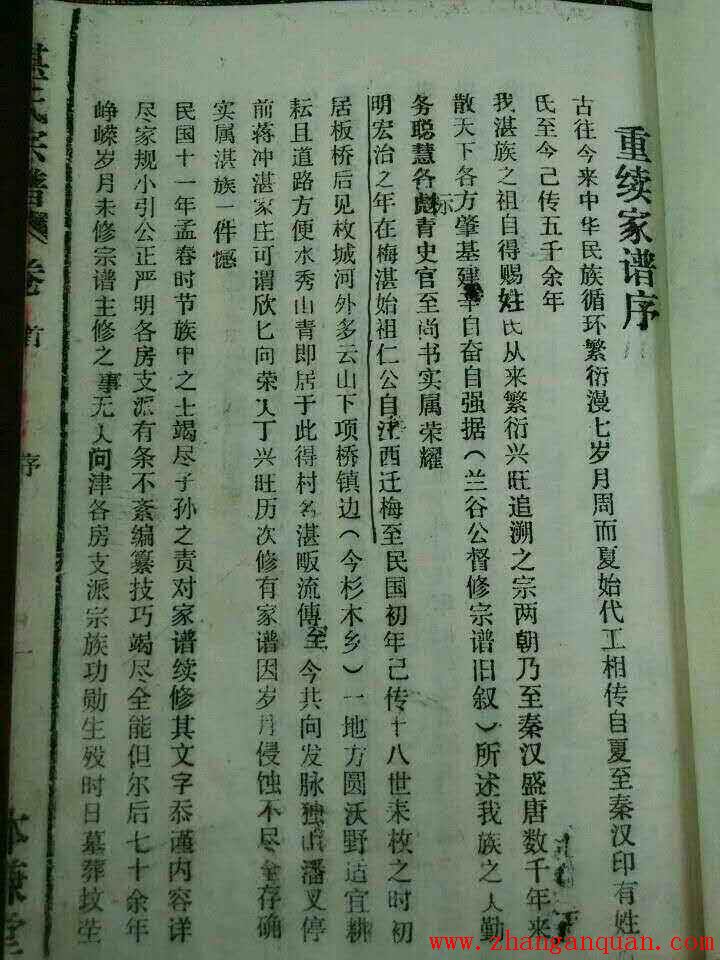 重续家谱序
古往今来中华民族循环繁衍漫七岁月周而夏始代工相传自夏至秦汉印有姓
氏至今己传五千余年
我湛族之祖自得赐姓氏从来繁衍兴旺追溯之宗两朝乃至秦汉盛唐数千年来
散天下各方肇基建辛自奋自强据（兰谷公督修宗谱旧叙）所述我族之人勤
务聪慧各彪标青史官至尚书实属荣耀
明宏治之年在梅湛始祖仁公自江西迁梅至民国初年己传十八世未枚之时初
居板桥后见枚城河外多云山下项桥镇边（今杉木乡）一地方圆沃野适宜耕
耘且道路方便水秀山青即居于此得村名湛畈流傳至今共向发脉独山潘叉停
前蒋冲湛家庄可谓欣匕向荣人丁兴旺历次修有家谱因岁月侵蚀不尽全存确
实属湛族一件憾
民国十一年孟春时节族中之士竭尽子孙之责对家谱续修其文字忝谨内容详
尽家规小引公正严明各房支派有条不紊编纂技巧竭尽全能但尔后七十余年
峥嵘岁月未修宗谱主修之事无人问津各房支派宗族功勋生殁时日墓葬坟茔
湛氏宗谱
卷首
序
一
本谦堂
www.zhanganquan.com